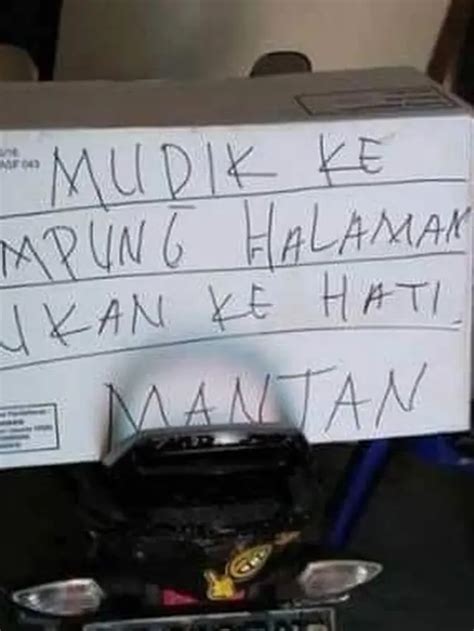 MUDIK KE
MPUNG HALAMAN
UKAN KE HATI
MANTAN